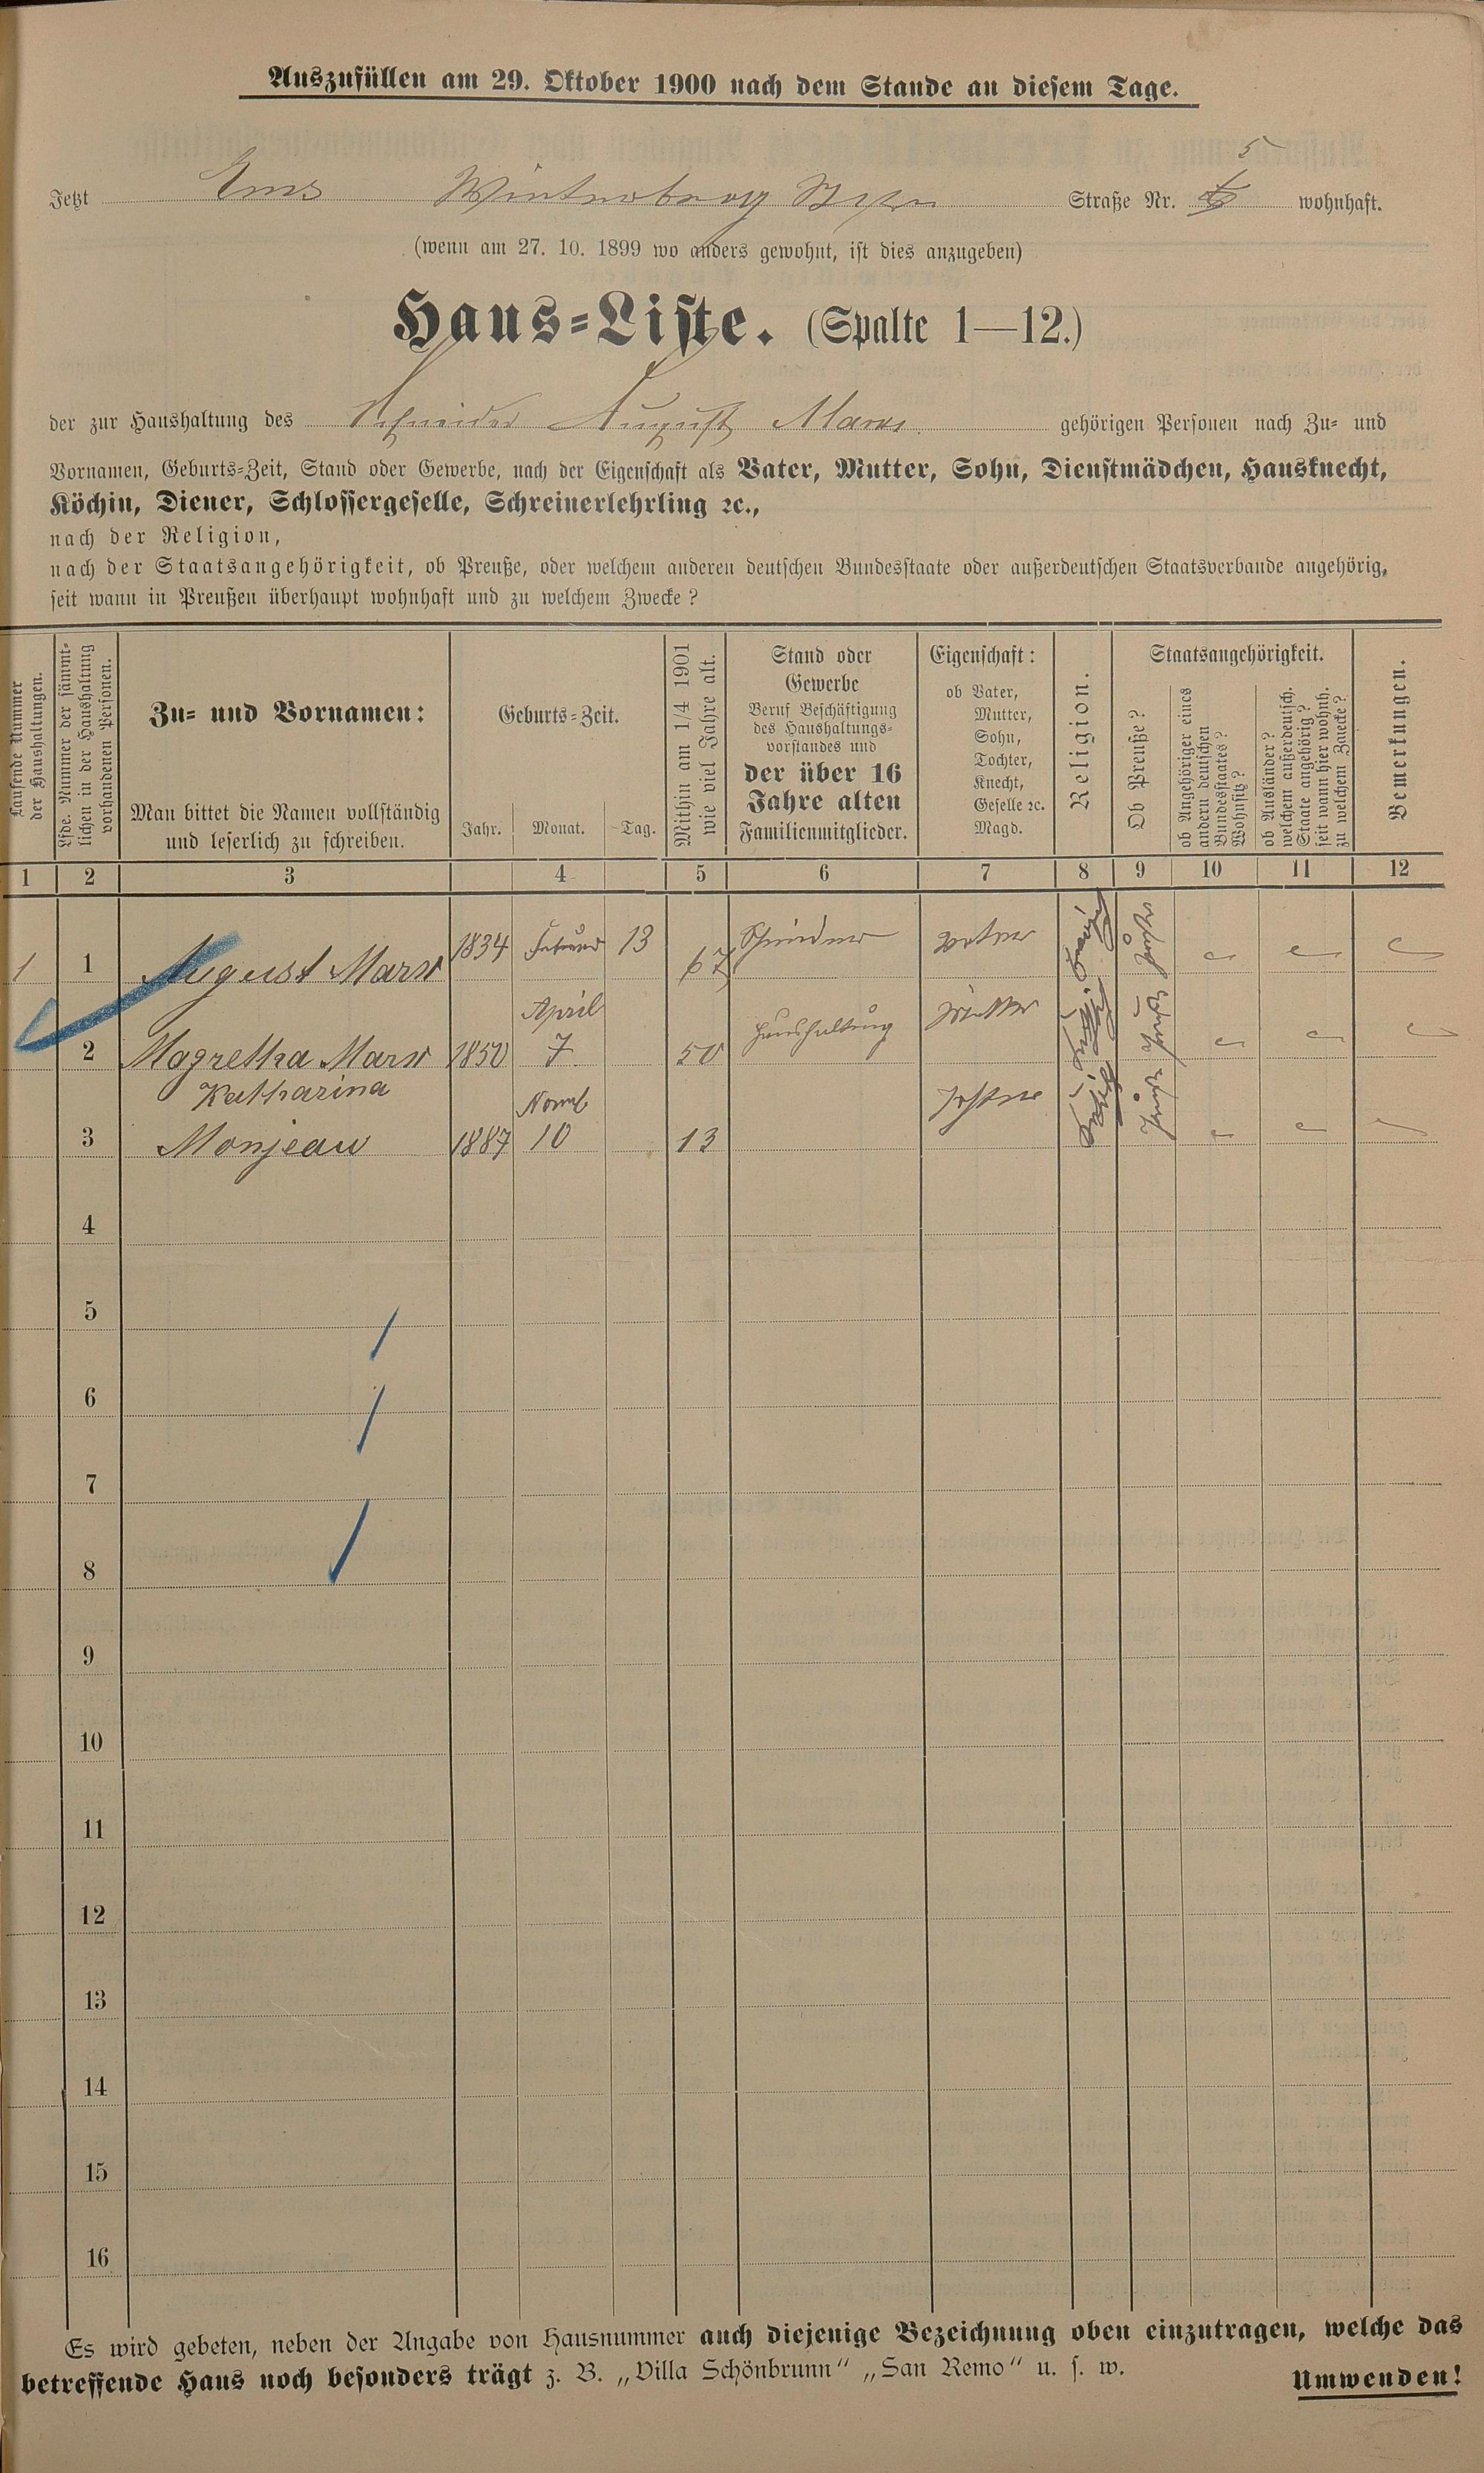 Auszufüllen am 29. Oktober 1900 nach dem Stande an diesem Tage.
5
Jetzt Ems Winterberg Straße Nr. wohnhaft.
(wenn am 27. 10. 1899 wo anders gewohnt, ist dies anzugeben)
Haus-Liste. (Spalte 1—12.)
der zur Haushaltung des Schneider August Marx gehörigen Personen nach Zu- und
Vornamen, Geburts-Zeit, Stand oder Gewerbe, nach der Eigenschaft als Vater, Mutter, Sohn, Dienstmädchen, Hausknecht,
Köchin, Diener, Schlossergeselle, Schreinerlehrling ꝛc.,
nach der Religion,
nach der Staatsangehörigkeit, ob Preuße, oder welchem anderen deutschen Bundesstaate oder außerdeutschen Staatsverbande angehörig,
seit wann in Preußen überhaupt wohnhaft und zu welchem Zwecke?
Laufende Nummer
der Haushaltungen.
Lfde. Nummer der sämmt-
lichen in der Haushaltung
vorhandenen Personen.
Zu- und Vornamen:
Man bittet die Namen vollständig
und leserlich zu schreiben.
Geburts-Zeit.
Jahr. Monat. Tag.
Mithin am 1/4 1901
wie viel Jahre alt.
Stand oder
Gewerbe
Beruf Beschäftigung
des Haushaltungs-
vorstandes und
der über 16
Jahre alten
Familienmitglieder.
Eigenschaft:
ob Vater,
Mutter,
Sohn,
Tochter,
Knecht,
Geselle ꝛc.
Magd.
Religion.
Staatsangehörigkeit.
Ob Preuße?
ob Angehöriger eines
andern deutschen
Bundesstaates?
Wohnsitz?
ob Ausländer?
welchem außerdeutsch.
Staate angehörig?
seit wann hier wohnh.
zu welchem Zwecke?
Bemerkungen.
1 2 3 4 5 6 7 8 9 10 11 12
1 1 August Marx 1834 Februar 13 67 Schneider Vater
April
2 Magretha Marx 1850 7 50 Haushaltung Mutter
Katharina Novmb Tochter
3 Monjeau 1887 10 13
4
5
6
7
8
9
10
11
12
13
14
15
16
Es wird gebeten, neben der Angabe von Hausnummer auch diejenige Bezeichnung oben einzutragen, welche das
betreffende Haus noch besonders trägt z. B. „Villa Schönbrunn“ „San Remo“ u. s. w.
Umwenden!